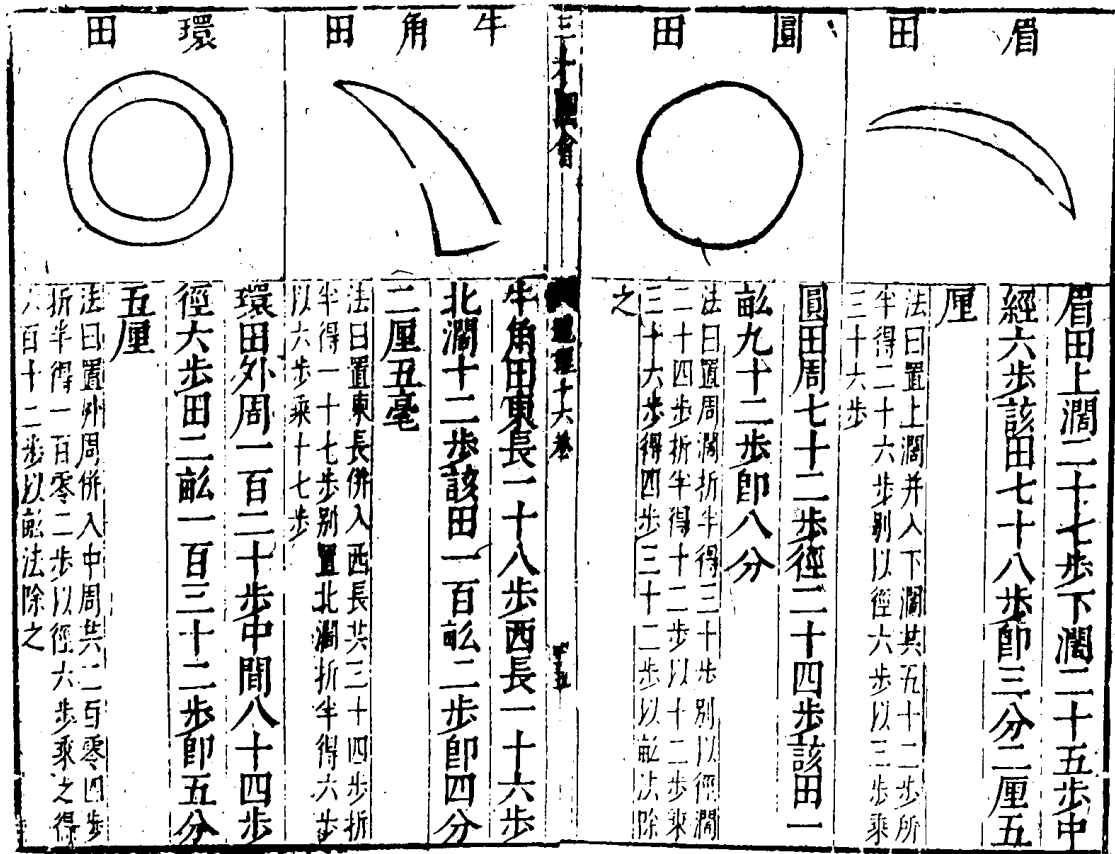 眉田
眉田上濶二十七步下濶二十五步中
經六步該田七十八步卽三分二厘五
厘
法曰置上濶并入下濶共五十二步所
半得二十六步别以徑六步以三步乘
三十六步
圓田
圓田周七十二步徑二十四步該田一
畝九十二步卽八分
法曰置周濶折半得三十步别以徑濶
二十四步折半得十二步以十二步乘
三十六步得四步三十二步以畝法除
之
三才圖會
地理十六卷
牛角田
牛角田東長一十八步西長一十六步
北濶十二步該田一百畝二步卽四分
二厘五毫
法曰置東長併入西長共三十四步折
半得一十七步别置北濶折半得六步
以六步乘十七步
環田
環田外周一百二十步中間八十四步
徑六步田二畝一百三十二步卽五分
五厘
法曰置外周併入中周共二百零四步
折半得一百零二步以徑六步乘之得
六百十二步以畝法除之